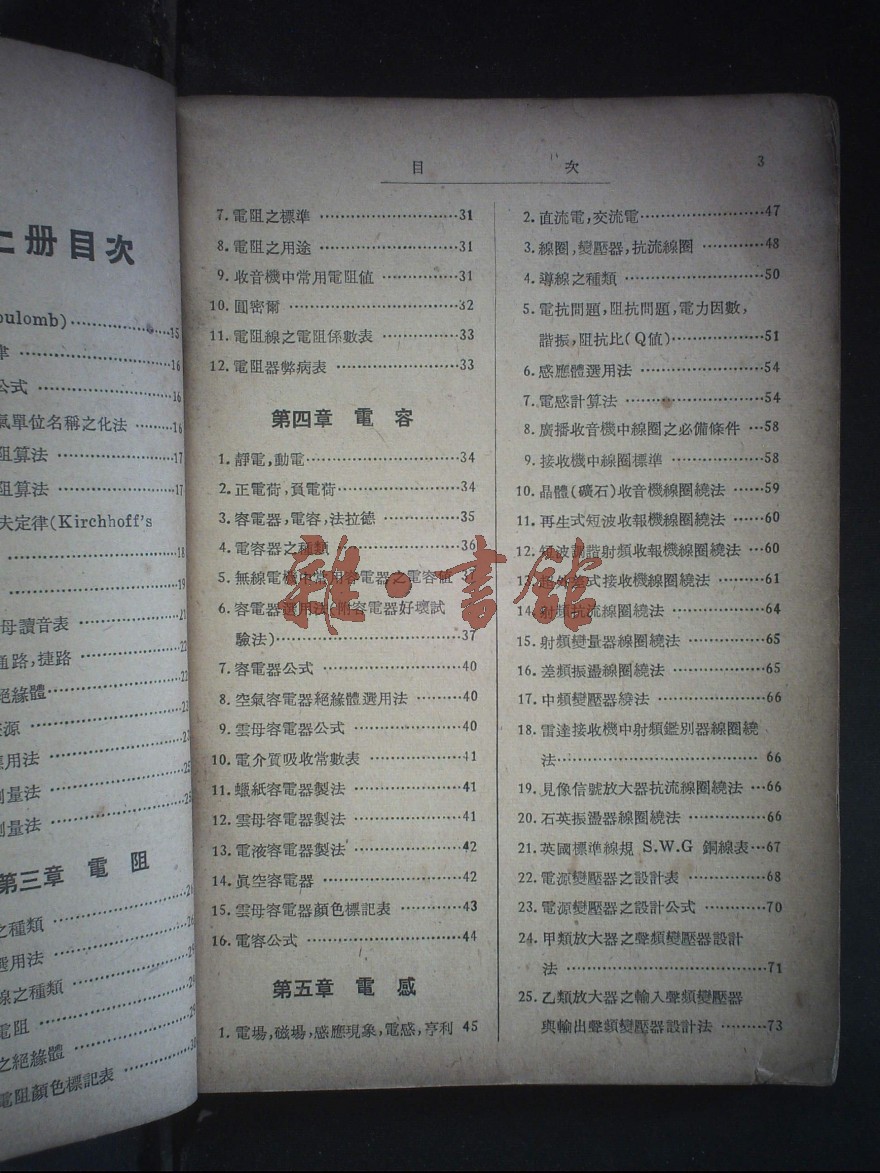 二册目次
oulomb)……15
律……16
公式……16
氣單位名稱之化法……16
阻算法……17
阻算法……17
夫定律(Kirchhoff's
……18
……19
母讀音表……21
通路,捷路……22
絕緣體……22
來源……23
應用法……23
測量法……25
測量法……25
第三章 電 阻
之種類……26
選用法……26
線之種類
電阻……29
之絕緣體……29
電阻顏色標記表……30
目 次 3
7.電阻之標準……31
8.電阻之用途……31
9.收音機中常用電阻値……31
10.圓密爾……32
11.電阻線之電阻係數表……33
12.電阻器弊病表……33
第四章 電 容
1.靜電,動電……34
2.正電荷,負電荷……34
3.容電器,電容,法拉德……35
4.電容器之種類……36
5.無線電機中常用容電器之電容值 37
6.容電器選用法(附容電器好壞試
驗法)……37
7.容電器公式……40
8.空氣容電器絕緣體選用法……40
9.雲母容電器公式……40
10.電介質吸收常數表……41
11.蠟紙容電器製法……41
12.雲母容電器製法……41
13.電液容電器製法……42
14.眞空容電器……42
15.雲母容電器顏色標記表……43
16.電容公式……44
第五章 電 感
1.電場,磁場,感應現象,電感,亨利 45
2.直流電,交流電……47
3.線圈,變壓器,抗流線圈……48
4.導線之種類……50
5.電抗問題,阻抗問題,電力因數,
諧振,阻抗比(Q値)……51
6.感應體選用法……54
7.電感計算法……54
8.廣播收音機中線圈之必備條件…58
9.接收機中線圈標準……58
10.晶體(礦石)收音機線圈繞法……59
11.再生式短波收報機線圈繞法……60
12.短波調諧射頻收報機線圈繞法…60
13.超外差式接收機線圈繞法……61
14.射頻抗流線圈繞法……64
15.射頻變量器線圈繞法……65
16.差頻振盪線圈繞法……65
17.中頻變壓器繞法……66
18.雷達接收機中射頻鑑別器線圈繞
法……66
19.見像信號放大器抗流線圈繞法…66
20.石英振盪器線圈繞法……66
21.英國標準線規 S.W.G 銅線表…67
22.電源變壓器之設計表……68
23.電源變壓器之設計公式……70
24.甲類放大器之聲頻變壓器設計
法……71
25.乙類放大器之輸入聲頻變壓器
與輸出聲頻變壓器設計法……73
雜·書館